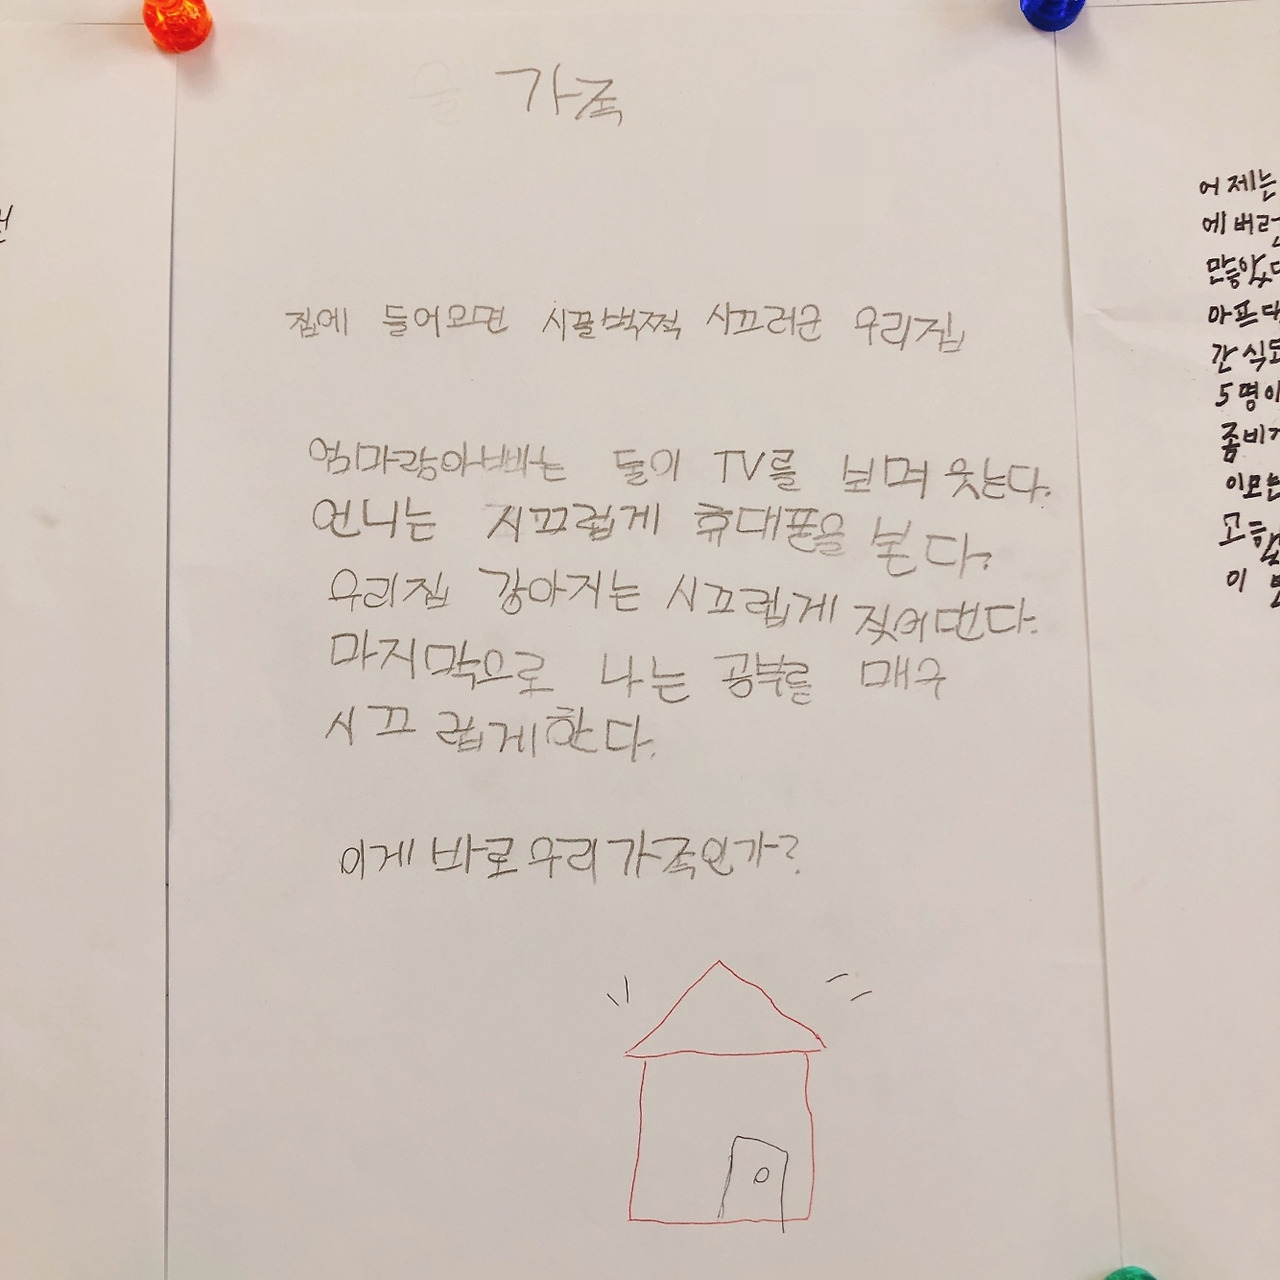 가족
집에 들어오면 시끌벅쩍 시끄러운 우리집
엄마랑아빠는 둘이 TV를 보며 웃는다.
언니는 시끄럽게 휴대폰을 본다.
우리집 강아지는 시끄럽게 짖어댄다.
마지막으로 나는 공부를 매우
시끄럽게한다.
이게 바로우리가족인가?
어제는
에버런
만들었다
아프대
간식도
5명이
좀비가
이모는
이